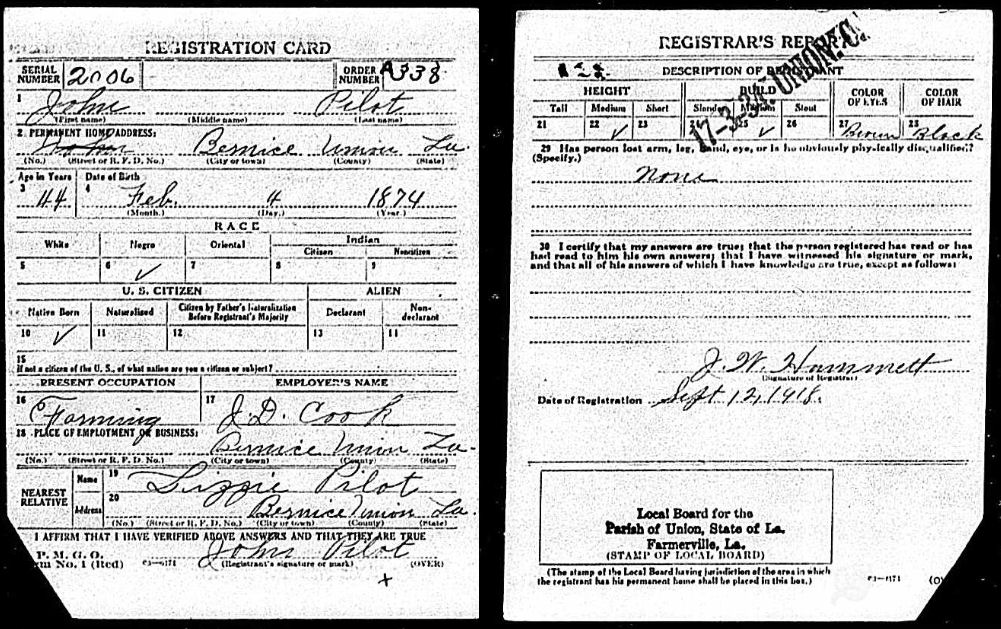 REGISTRATION CARD
SERIAL NUMBER 2006 ORDER NUMBER A338
1 John Pilot
(First name) (Middle name) (Last name)
2 PERMANENT HOME ADDRESS:
Bernice Union La
(No.) (Street or R. F. D. No.) (City or town) (County) (State)
Age in Years Date of Birth
3 44 4 Feb. 4 1874
(Month.) (Day.) (Year.)
RACE
White Negro Oriental Indian
Citizen Noncitizen
5 6 ✓ 7 8 9
U. S. CITIZEN ALIEN
Native Born Naturalized Citizen by Father's Naturalization Before Registrant's Majority Declarant Non-declarant
10 ✓ 11 12 13 14
15
If not a citizen of the U. S., of what nation are you a citizen or subject?
PRESENT OCCUPATION EMPLOYER'S NAME
16 Farming 17 J. D. Cook
18 PLACE OF EMPLOYMENT OR BUSINESS:
Bernice Union La.
(No.) (Street or R. F. D. No.) (City or town) (County) (State)
NEAREST RELATIVE Name 19 Lizzie Pilot
Address 20 Bernice Union La.
(No.) (Street or R. F. D. No.) (City or town) (County) (State)
I AFFIRM THAT I HAVE VERIFIED ABOVE ANSWERS AND THAT THEY ARE TRUE
P. M. G. O.
m No. 1 (Red) 03-6171 John Pilot
(Registrant's signature or mark) (OVER)
x
REGISTRAR'S REPORT
17-3-34
DESCRIPTION OF REGISTRANT
HEIGHT BUILD COLOR OF EYES COLOR OF HAIR
Tall Medium Short Slender Medium Stout
21 22 ✓ 23 24 25 ✓ 26 27 Brown 28 Black
29 Has person lost arm, leg, hand, eye, or is he obviously physically disqualified?
(Specify.)
None
30 I certify that my answers are true; that the person registered has read or has
had read to him his own answers; that I have witnessed his signature or mark,
and that all of his answers of which I have knowledge are true, except as follows:
J. W. Hammett
(Signature of Registrar)
Date of Registration Sept 12, 1918.
Local Board for the
Parish of Union, State of La.
Farmerville, La.
(STAMP OF LOCAL BOARD)
(The stamp of the Local Board having jurisdiction of the area in which
the registrant has his permanent home shall be placed in this box.)
03-6171 (OV